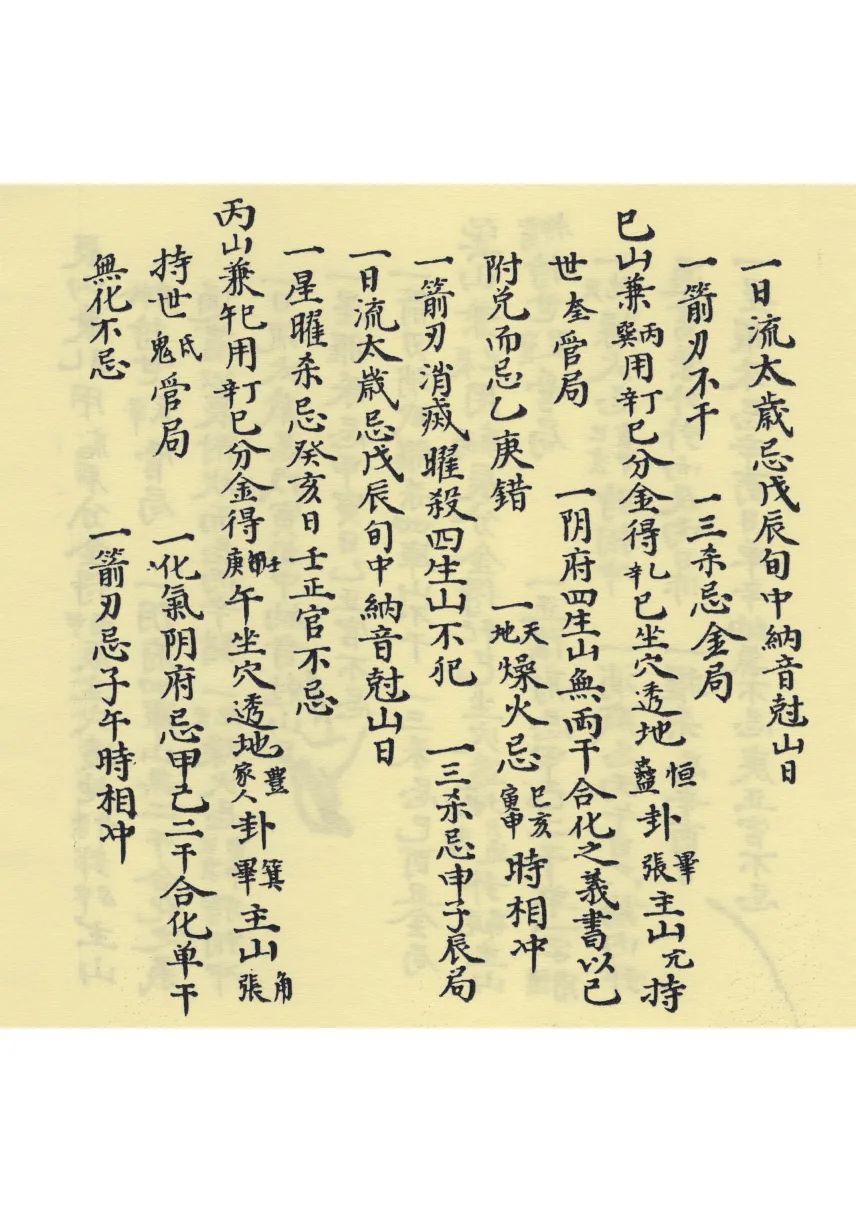 一日流太歲忌戊辰旬中納音尅山日
一箭刃不干 一三杀忌金局
巳山兼丙巽用丁辛巳分金得乙辛巳坐穴透地恒蠱卦畢張主山亢持
世奎管局 一阴府四生山無両干合化之義書以巳
附兑而忌乙庚錯 一天地燥火忌巳亥寅申時相冲
一箭刃消滅曜殺四生山不犯 一三杀忌申子辰局
一日流太歲忌戊辰旬中納音尅山日
一星曜杀忌癸亥日壬正官不忌
丙山兼午巳用丁辛巳分金得庚午坐穴透地豐家人卦箕畢主山角張
持世氐鬼管局 一化氣阴府忌甲己二干合化单干
無化不忌 一箭刃忌子午時相冲